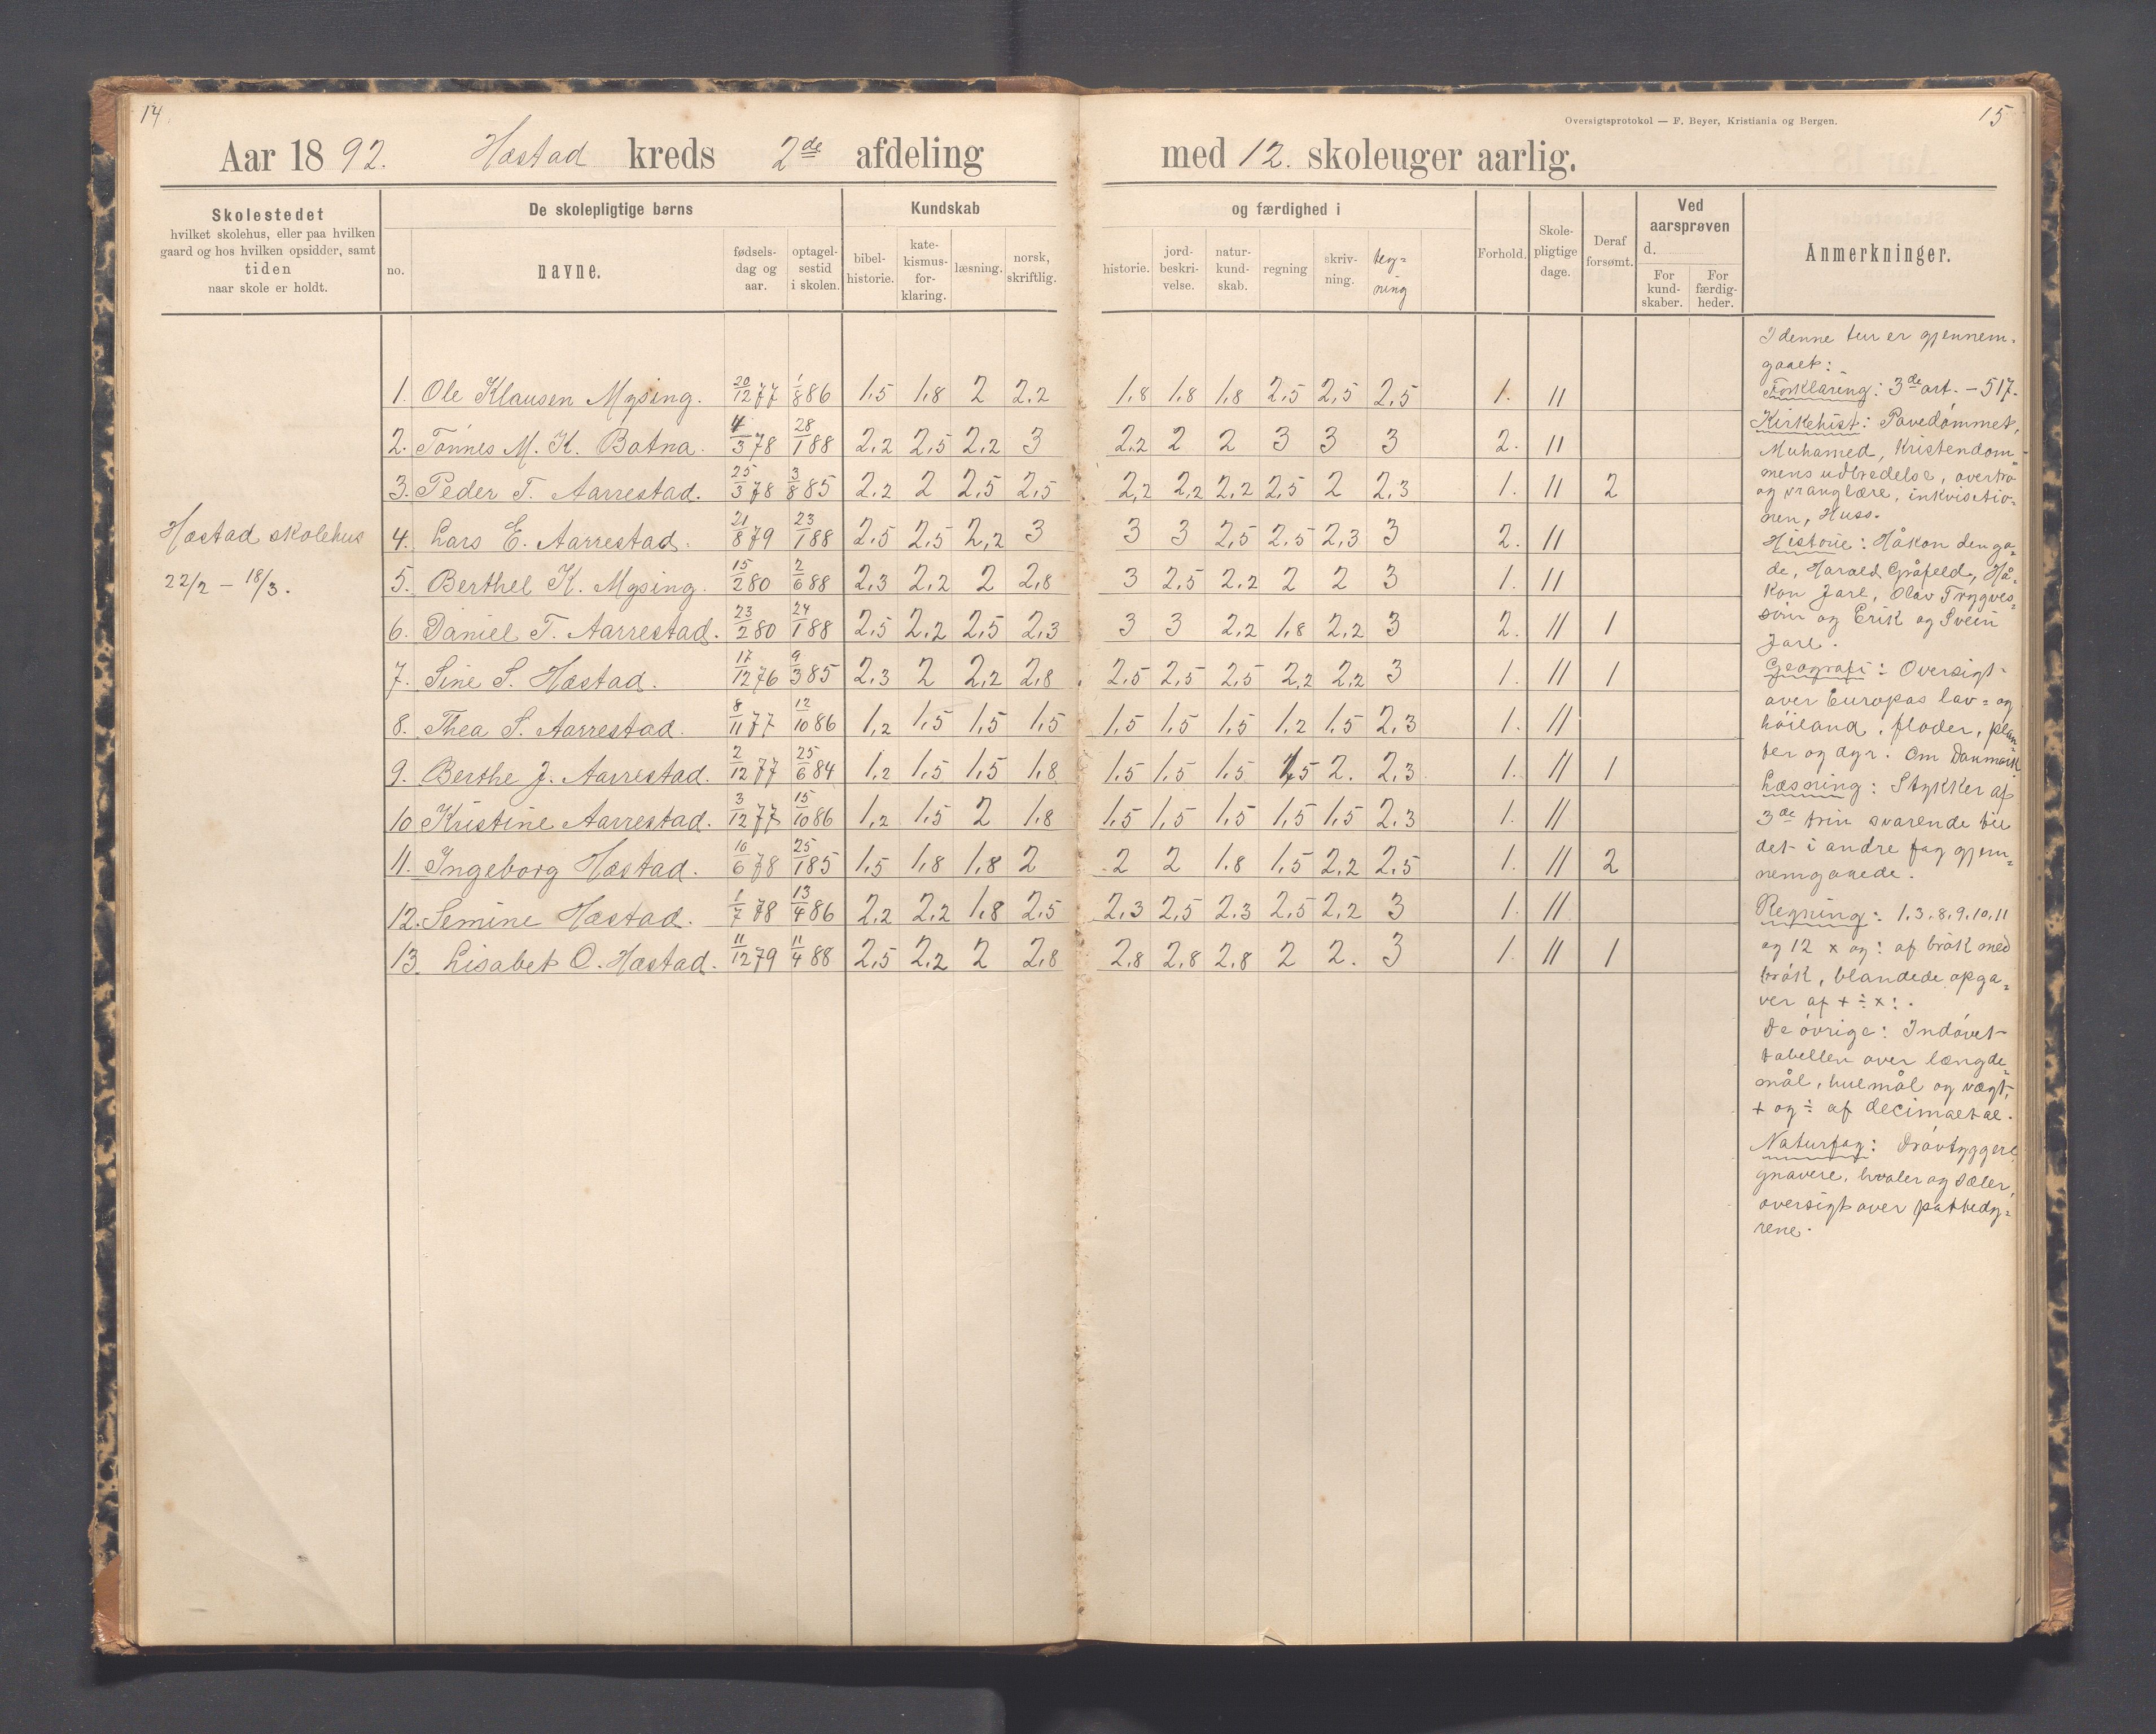 14
15
Oversigtsprotokol — F. Beyer, Kristiania og Bergen.
Aar 1892. Hæstad kreds 2de afdeling med 12. skoleuger aarlig.
Skolestedet
hvilket skolehus, eller paa hvilken
gaard og hos hvilken opsidder, samt
tiden
naar skole er holdt.
De skolepligtige børns
no. navne. fødsels-dag og aar. optagel-sestid i skolen.
Kundskab og færdighed i
bibel-historie. kate-kismus-for-klaring. læsning. norsk, skriftlig. historie. jord-beskri-velse. natur-kund-skab. regning skriv-ning. teg-ning
Forhold. Skole-pligtige dage. Deraf forsømt.
Ved aarsprøven d.
For kund-skaber. For færdig-heder.
Anmerkninger.
1. Ole Klausen Mysing. 20/12 77 1/8 86 1,5 1,8 2 2,2 1,8 1,8 1,8 2,5 2,5 2,5 1. 11
2. Tönnes M. K. Botna. 4/3 78 28/1 88 2,2 2,5 2,2 3 2,2 2 2 3 3 3 2. 11
3. Peder T. Aarrestad. 25/3 78 3/8 85 2,2 2 2,5 2,5 2,2 2,2 2,2 2,5 2 2,3 1. 11 2
4. Lars E. Aarrestad. 21/8 79 23/1 88 2,5 2,5 2,2 3 3 3 2,5 2,5 2,3 3 2. 11
5. Berthel K. Mysing. 15/2 80 2/6 88 2,3 2,2 2 2,8 3 2,5 2,2 2 2 3 1. 11
6. Daniel T. Aarrestad. 23/2 80 24/1 88 2,5 2,2 2,5 2,3 3 3 2,2 1,8 2,2 3 2. 11 1
7. Sine S. Hæstad. 17/12 76 9/3 85 2,3 2 2,2 2,8 2,5 2,5 2,5 2,2 2,2 3 1. 11 1
8. Thea S. Aarrestad. 8/11 77 12/10 86 1,2 1,5 1,5 1,5 1,5 1,5 1,5 1,2 1,5 2,3 1. 11
9. Berthe J. Aarrestad. 2/12 77 25/6 84 1,2 1,5 1,5 1,8 1,5 1,5 1,5 1,5 2. 2,3 1. 11 1
10 Kristine Aarrestad. 3/12 77 15/10 86 1,2 1,5 2 1,8 1,5 1,5 1,5 1,5 1,5 2,3 1. 11
11. Ingeborg Hæstad. 10/6 78 25/1 85 1,5 1,8 1,8 2 2 2 1,8 1,5 2,2 2,5 1. 11 2
12. Semine Hæstad. 1/7 78 13/4 86 2,2 2,2 1,8 2,5 2,3 2,5 2,3 2,5 2,2 3 1. 11
13. Lisabet O. Hæstad. 11/12 79 11/4 88 2,5 2,2 2 2,8 2,8 2,8 2,8 2 2. 3 1. 11 1
Hæstad skolehus
22/2 – 18/3.
I denne tur er gjennem-
gaaet:
Forklaring: 3de art. – 517.
Kirkehist: Pavedömmet,
Muhamed, Kristendom-
mens udbredelse, overtro
og vranglære, inkvisitio-
nen, Huss.
Historie: Håkon den go-
de, Harald Gråfeld, Hå-
kon Jarl, Olav Trygves-
sön og Erik og Svein
Jarl.
Geografi: Oversigt
over Europas lav- og
höiland, floder, plan-
ter og dyr. Om Danmark
Læsning: Stykker af
3de trin svarende til
det i andre fag gjen-
nemgaaede.
Regning: 1,3,8,9,10,11
og 12 × og : af brök med
brök, blandede opga-
ver af + ÷ × : .
De övrige: Indövet
tabellen over længde-
mål, hulmål og vægt,
+ og ÷ af decimaltal.
Naturfag: Drövtyggere,
gnavere, hvaler og sæler,
oversigt over pattedy-
rene.